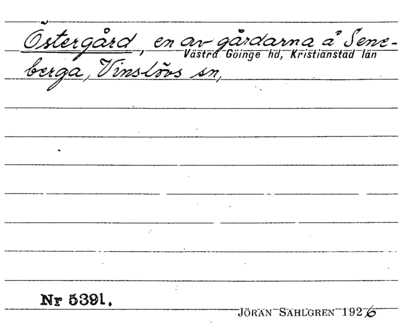 Östergård, en av gårdarna å Sene-
Västra Göinge hd, Kristianstad län
berga, Vinslövs sn,
Nr 5391.
JÖRAN SAHLGREN 1926